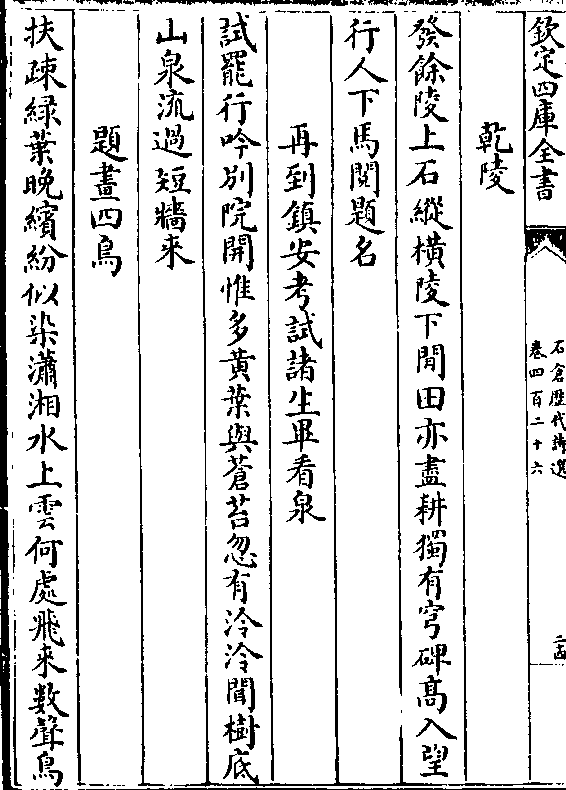 欽定四庫全書
石倉歷代詩選
卷四百二十六
乾陵
發餘陵上石縱橫陵下閒田亦盡耕獨有穹碑高入望
行人下馬閱題名
再到鎮安考試諸生畢看泉
試罷行吟別院開惟多黃葉與蒼苔忽有泠泠聞樹底
山泉流過短牆来
題畫四鳥
扶疎緑葉晚繽紛似染瀟湘水上雲何處飛来數聲鳥